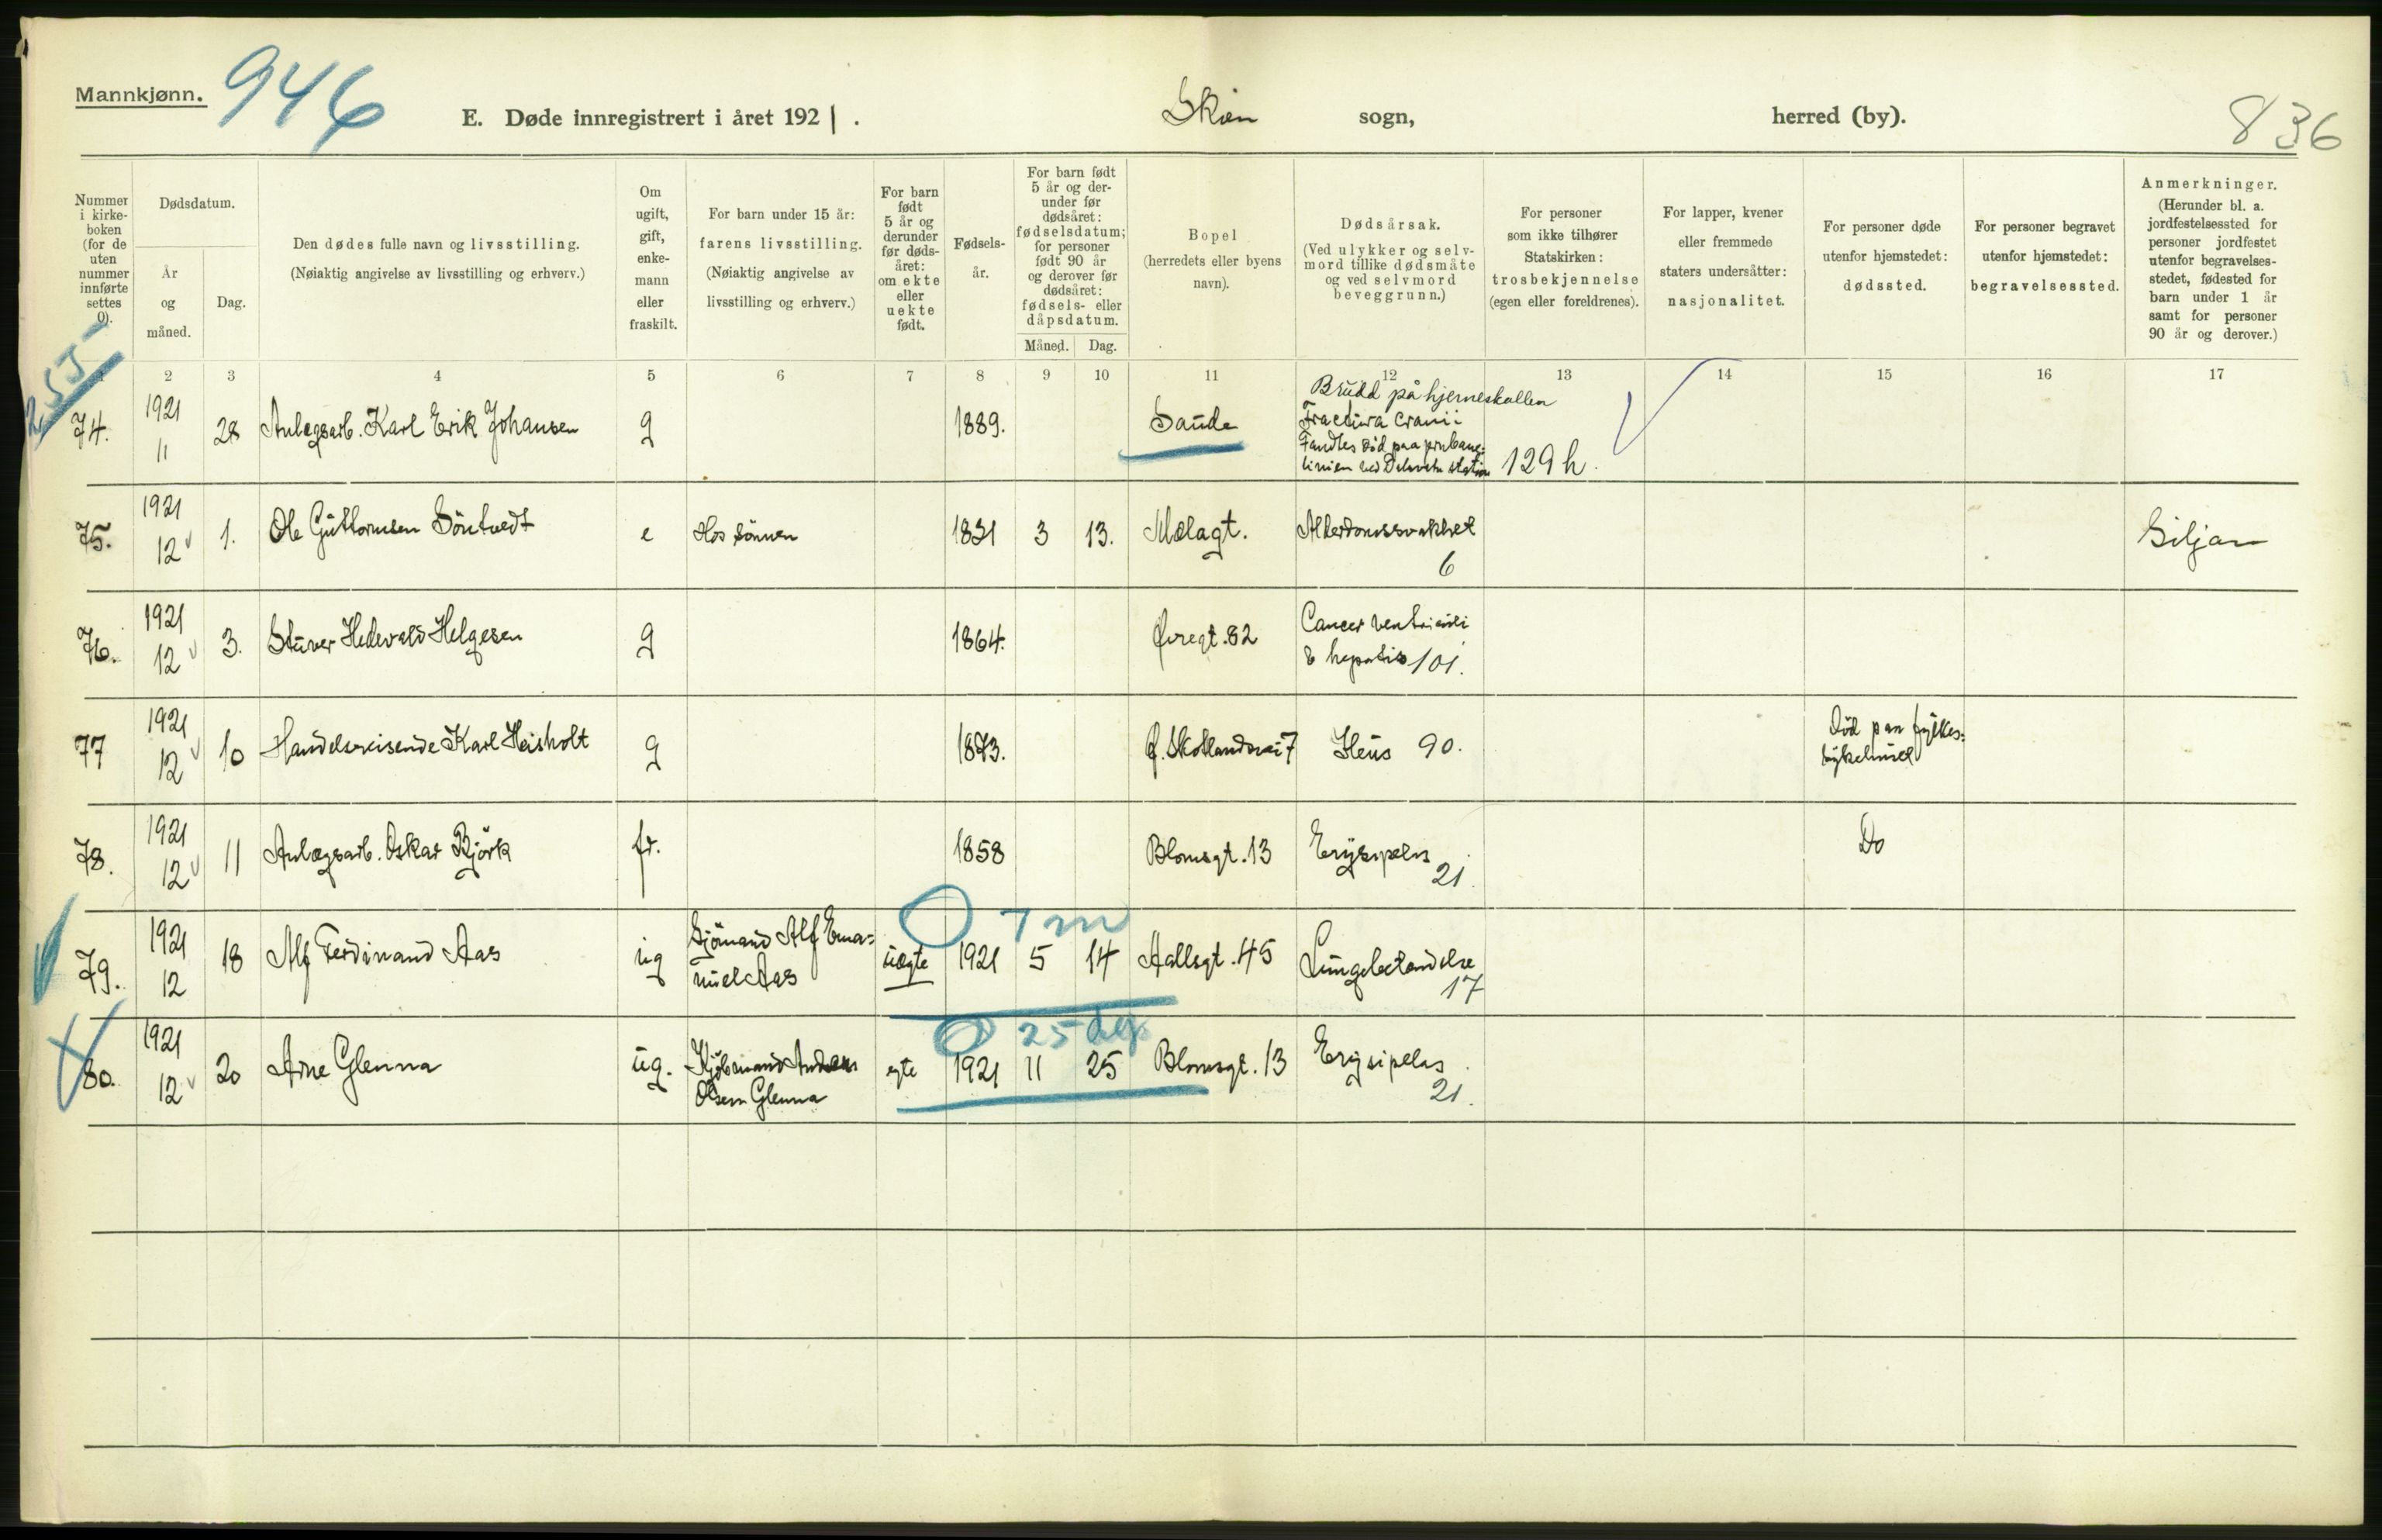 Mannkjønn.
946
E. Døde innregistrert i året 1921.
Skien sogn,
herred (by).
836
Nummer i kirke-boken (for de uten nummer innførte settes 0).
Dødsdatum.
År og måned.
Dag.
Den dødes fulle navn og livsstilling.
(Nøiaktig angivelse av livsstilling og erhverv.)
Om ugift, gift, enke-mann eller fraskilt.
For barn under 15 år:
farens livsstilling.
(Nøiaktig angivelse av livsstilling og erhverv.)
For barn født 5 år og derunder før døds-året: om ekte eller uekte født.
Fødsels-år.
For barn født 5 år og der-under før dødsåret: fødselsdatum; for personer født 90 år og derover før dødsåret: fødsels- eller dåpsdatum.
Måned. Dag.
Bopel (herredets eller byens navn).
Dødsårsak.
(Ved ulykker og selv-mord tillike dødsmåte og ved selvmord beveggrunn.)
For personer som ikke tilhører Statskirken: trosbekjennelse (egen eller foreldrenes).
For lapper, kvener eller fremmede staters undersåtter: nasjonalitet.
For personer døde utenfor hjemstedet: dødssted.
For personer begravet utenfor hjemstedet: begravelsessted.
Anmerkninger.
(Herunder bl. a. jordfestelsessted for personer jordfestet utenfor begravelses-stedet, fødested for barn under 1 år samt for personer 90 år og derover.)
1 2 3 4 5 6 7 8 9 10 11 12 13 14 15 16 17
Brudd på hjerneskallen
74. 1921 11 28 Anlegsarb. Karl Erik Johansen g 1889. Sande Fractura cranii
Fandtes död paa jernbane-
linien ved station 129 h.
75. 1921 12 1. Ole Guttormsen Söntvedt e Hos sönnen 1831 3 13. Mælagt. Alderdomssvakhet 6 Siljan
76. 1921 12 3. Stuver Hedevald Helgesen g 1864. Øvregt. 82 Cancer ventriculi
& hepatis 101.
77 1921 12 10 Handelsreisende Karl Heisholt g 1873. Ø. Skotlandsvei 7 Ileus 90. Död paa fylkes-
sykehuset
78. 1921 12 11 Anlægsarb. Oskar Björk fr. 1858 Blomsgt. 13 Erysipelas 21. Do
7 m
79. 1921 12 18 Alf Ferdinand Aas ug Sjömand Alf Ema-
nuel Aas uegte 1921 5 14 Hallsgt. 45 Lungebetændelse 17
25 dg.
80. 1921 12 20 Arne Glenna ug. Kjöbmand Anders
Olsen Glenna egte 1921 11 25 Blomsgt. 13 Erysipelas 21.